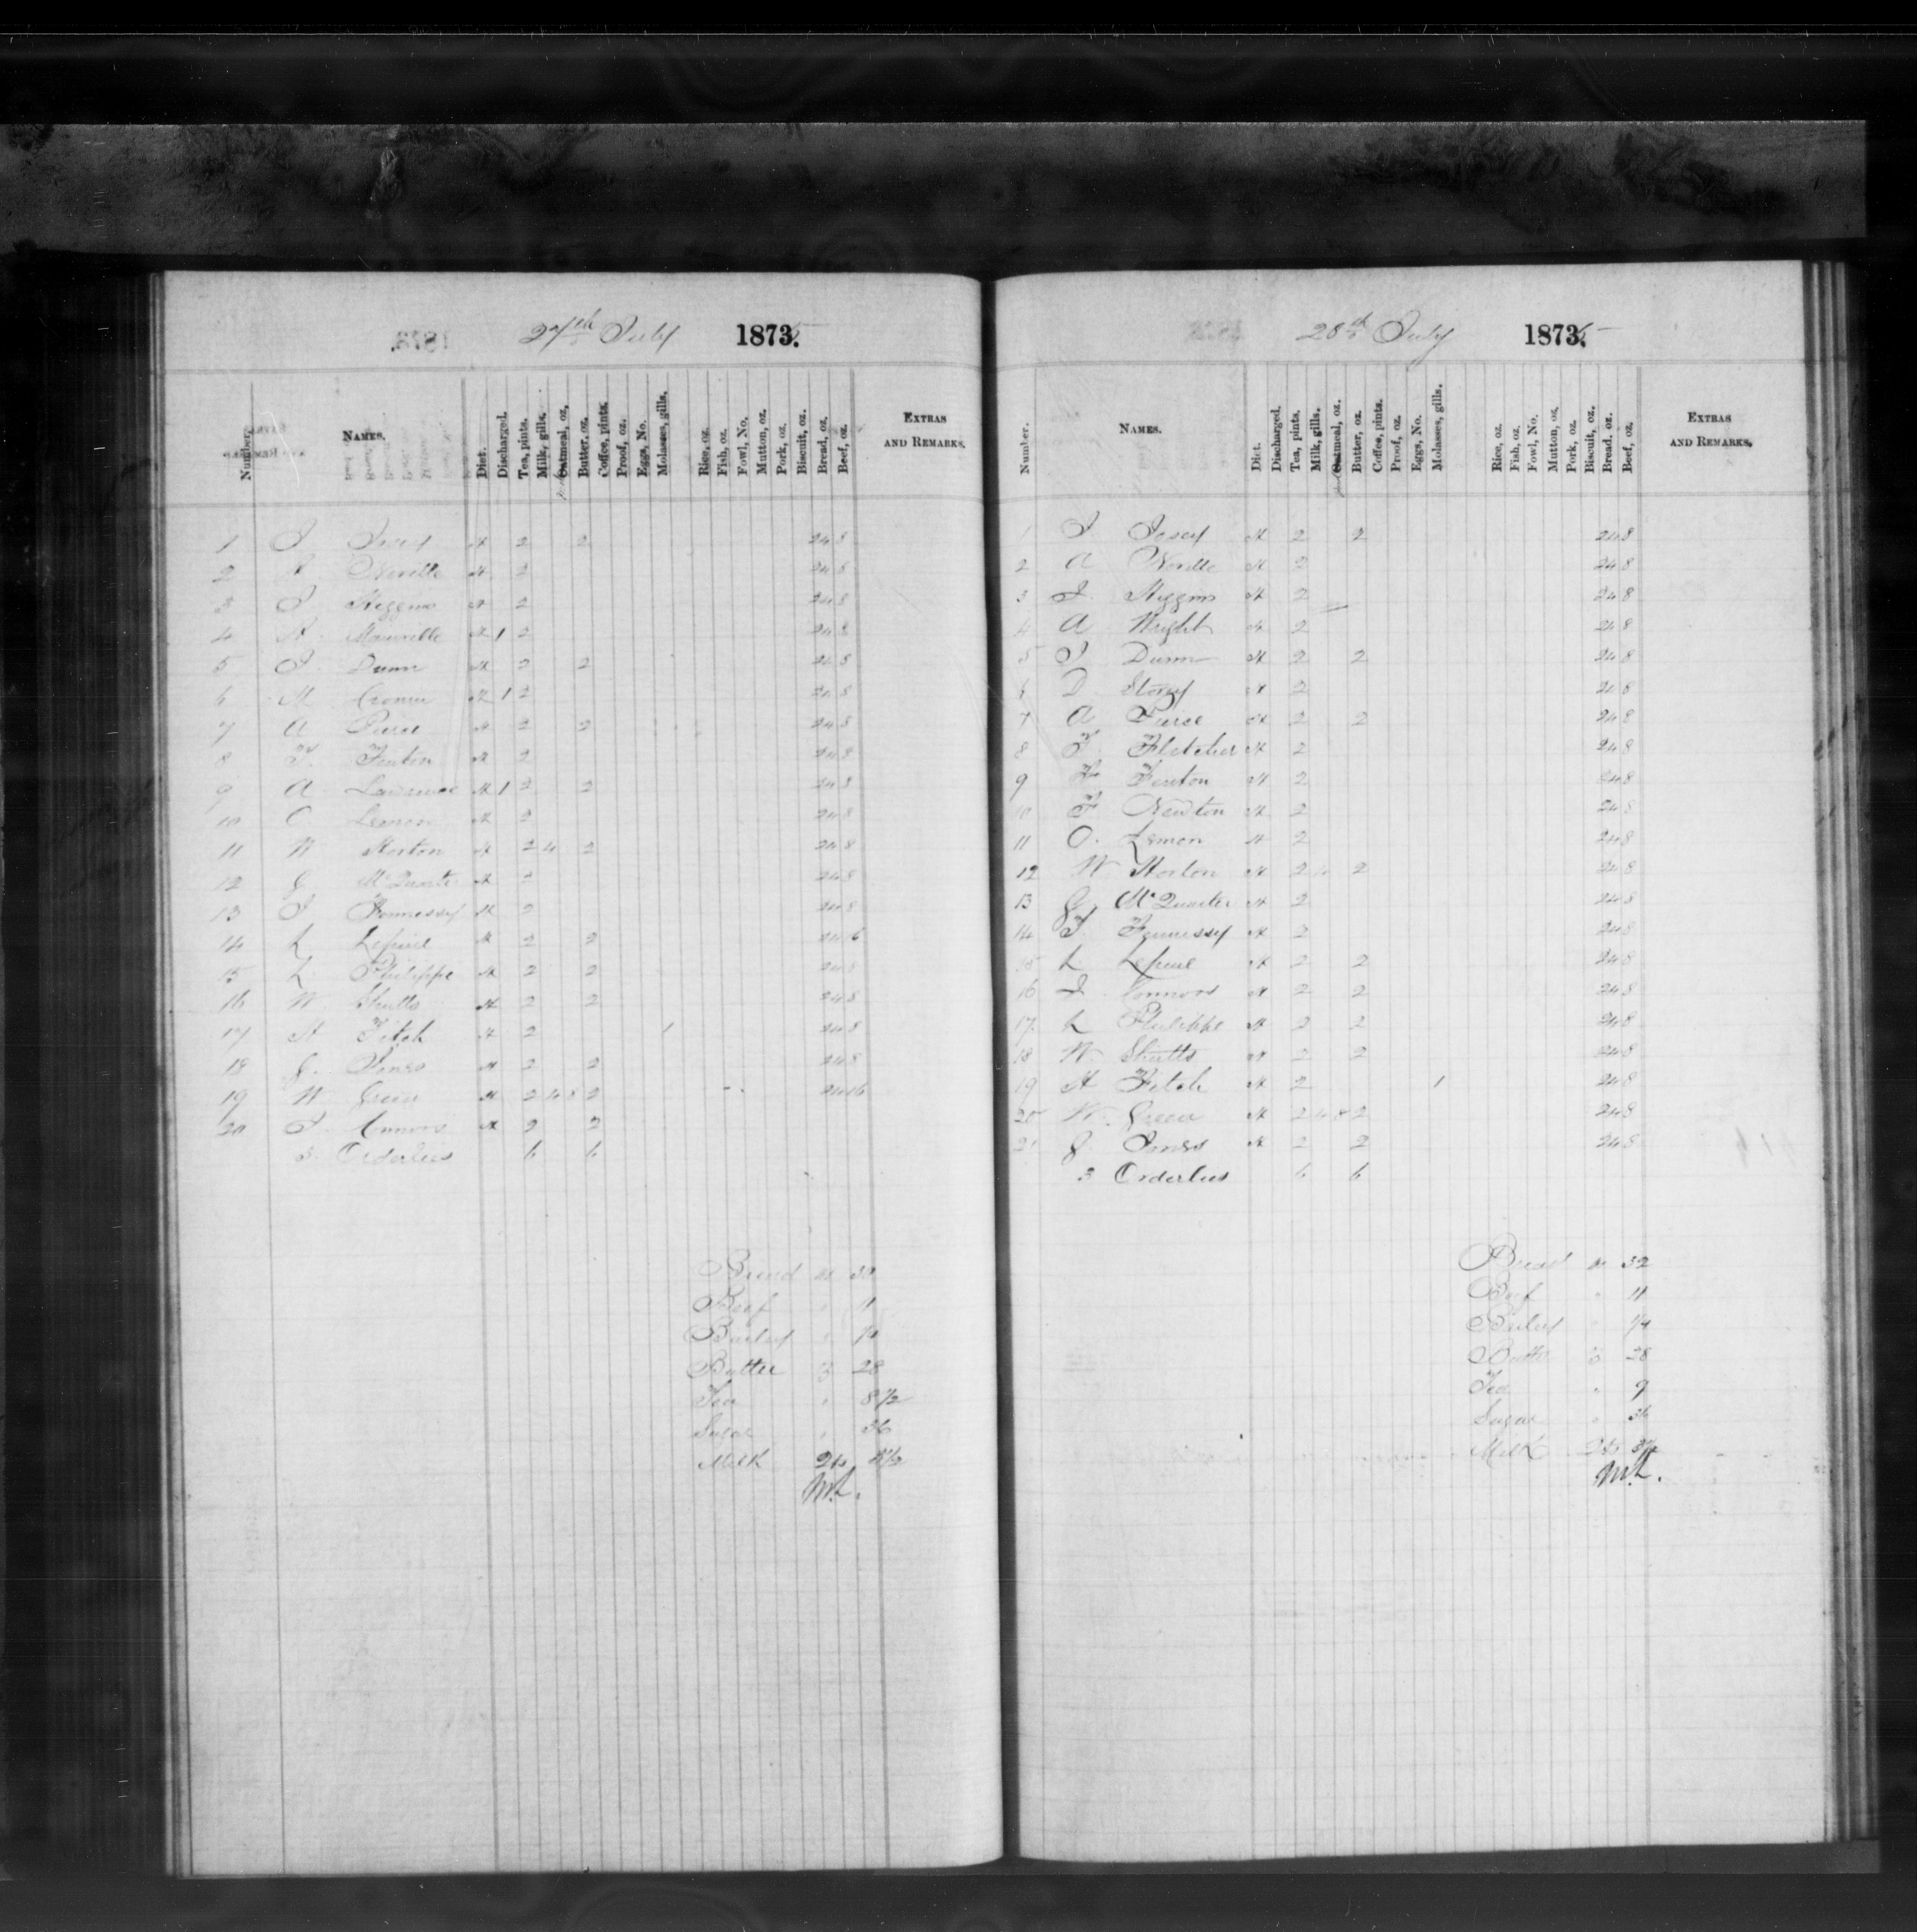 27th July 1873.5
Number. NAMES. Diet. Discharged. Tea, pints. Milk, gills. Oatmeal, oz. Butter, oz. Coffee, pints. Proof, oz. Eggs, No. Molasses, gills. Rice, oz. Fish, oz. Fowl, No. Mutton, oz. Pork, oz. Biscuit, oz. Bread, oz. Beef, oz. EXTRAS AND REMARKS.
1 2 2 24 8
2 Neville 2 24 8
3 Higgins 2 24 8
4 1 2 24 8
5 Dunn 2 2 24 8
6 M 1 2 24 8
7 A Pierce 2 2 24 8
8 Fenton 2 24 8
9 A Lawrence 1 2 2 24 8
10 O Lemon 2 24 8
11 W Horton 2 4 2 24 8
12 G McQuarter 2 24 8
13 Fennessy 2 24 8
14 L Lepine 2 2 24 6
15 L Philippe 2 2 24 8
16 W Shutts 2 2 24 8
17 H Fitch 2 1 24 8
18 G Jones 2 2 24 8
19 W Green 2 4 8 2 24 16
20 Connors 2 2
3 Orderlies 6 6
Bread 32
Beef 11
Barley
Butter 28
Tea 8 1/2
Sugar 36
Milk Qts
28th July 1873.5
Number. NAMES. Diet. Discharged. Tea, pints. Milk, gills. Oatmeal, oz. Butter, oz. Coffee, pints. Proof, oz. Eggs, No. Molasses, gills. Rice, oz. Fish, oz. Fowl, No. Mutton, oz. Pork, oz. Biscuit, oz. Bread. oz. Beef, oz. EXTRAS AND REMARKS.
1 2 2 24 8
2 A Neville 2 24 8
3 Higgins 2 24 8
4 A Wright 2 24 8
5 Dunn 2 2 24 8
6 D Storey 2 24 8
7 A Pierce 2 2 24 8
8 Fletcher 2 24 8
9 Fenton 2 24 8
10 F Newton 2 24 8
11 O. Lemon 2 24 8
12 W Horton 2 4 2 24 8
13 G McQuarter 2 24 8
14 Fennessy 2 24 8
15 L Lepine 2 2 24 8
16 Connors 2 2 24 8
17 L Philippe 2 2 24 8
18 W. Shutts 2 2 24 8
19 H Fitch 2 1 24 8
20 W. Green 2 4 8 2 24 8
21 G Jones 2 2 24 8
3 Orderlies 6 6
Bread 32
Beef 11
Barley 1/4
Butter 28
Tea 9
Sugar 36
Milk Qts